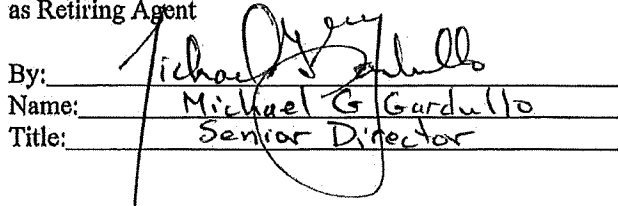 as Retiring Agent
By: Michael Gary Gardullo
Name: Michael G Gardullo
Title: Senior Director